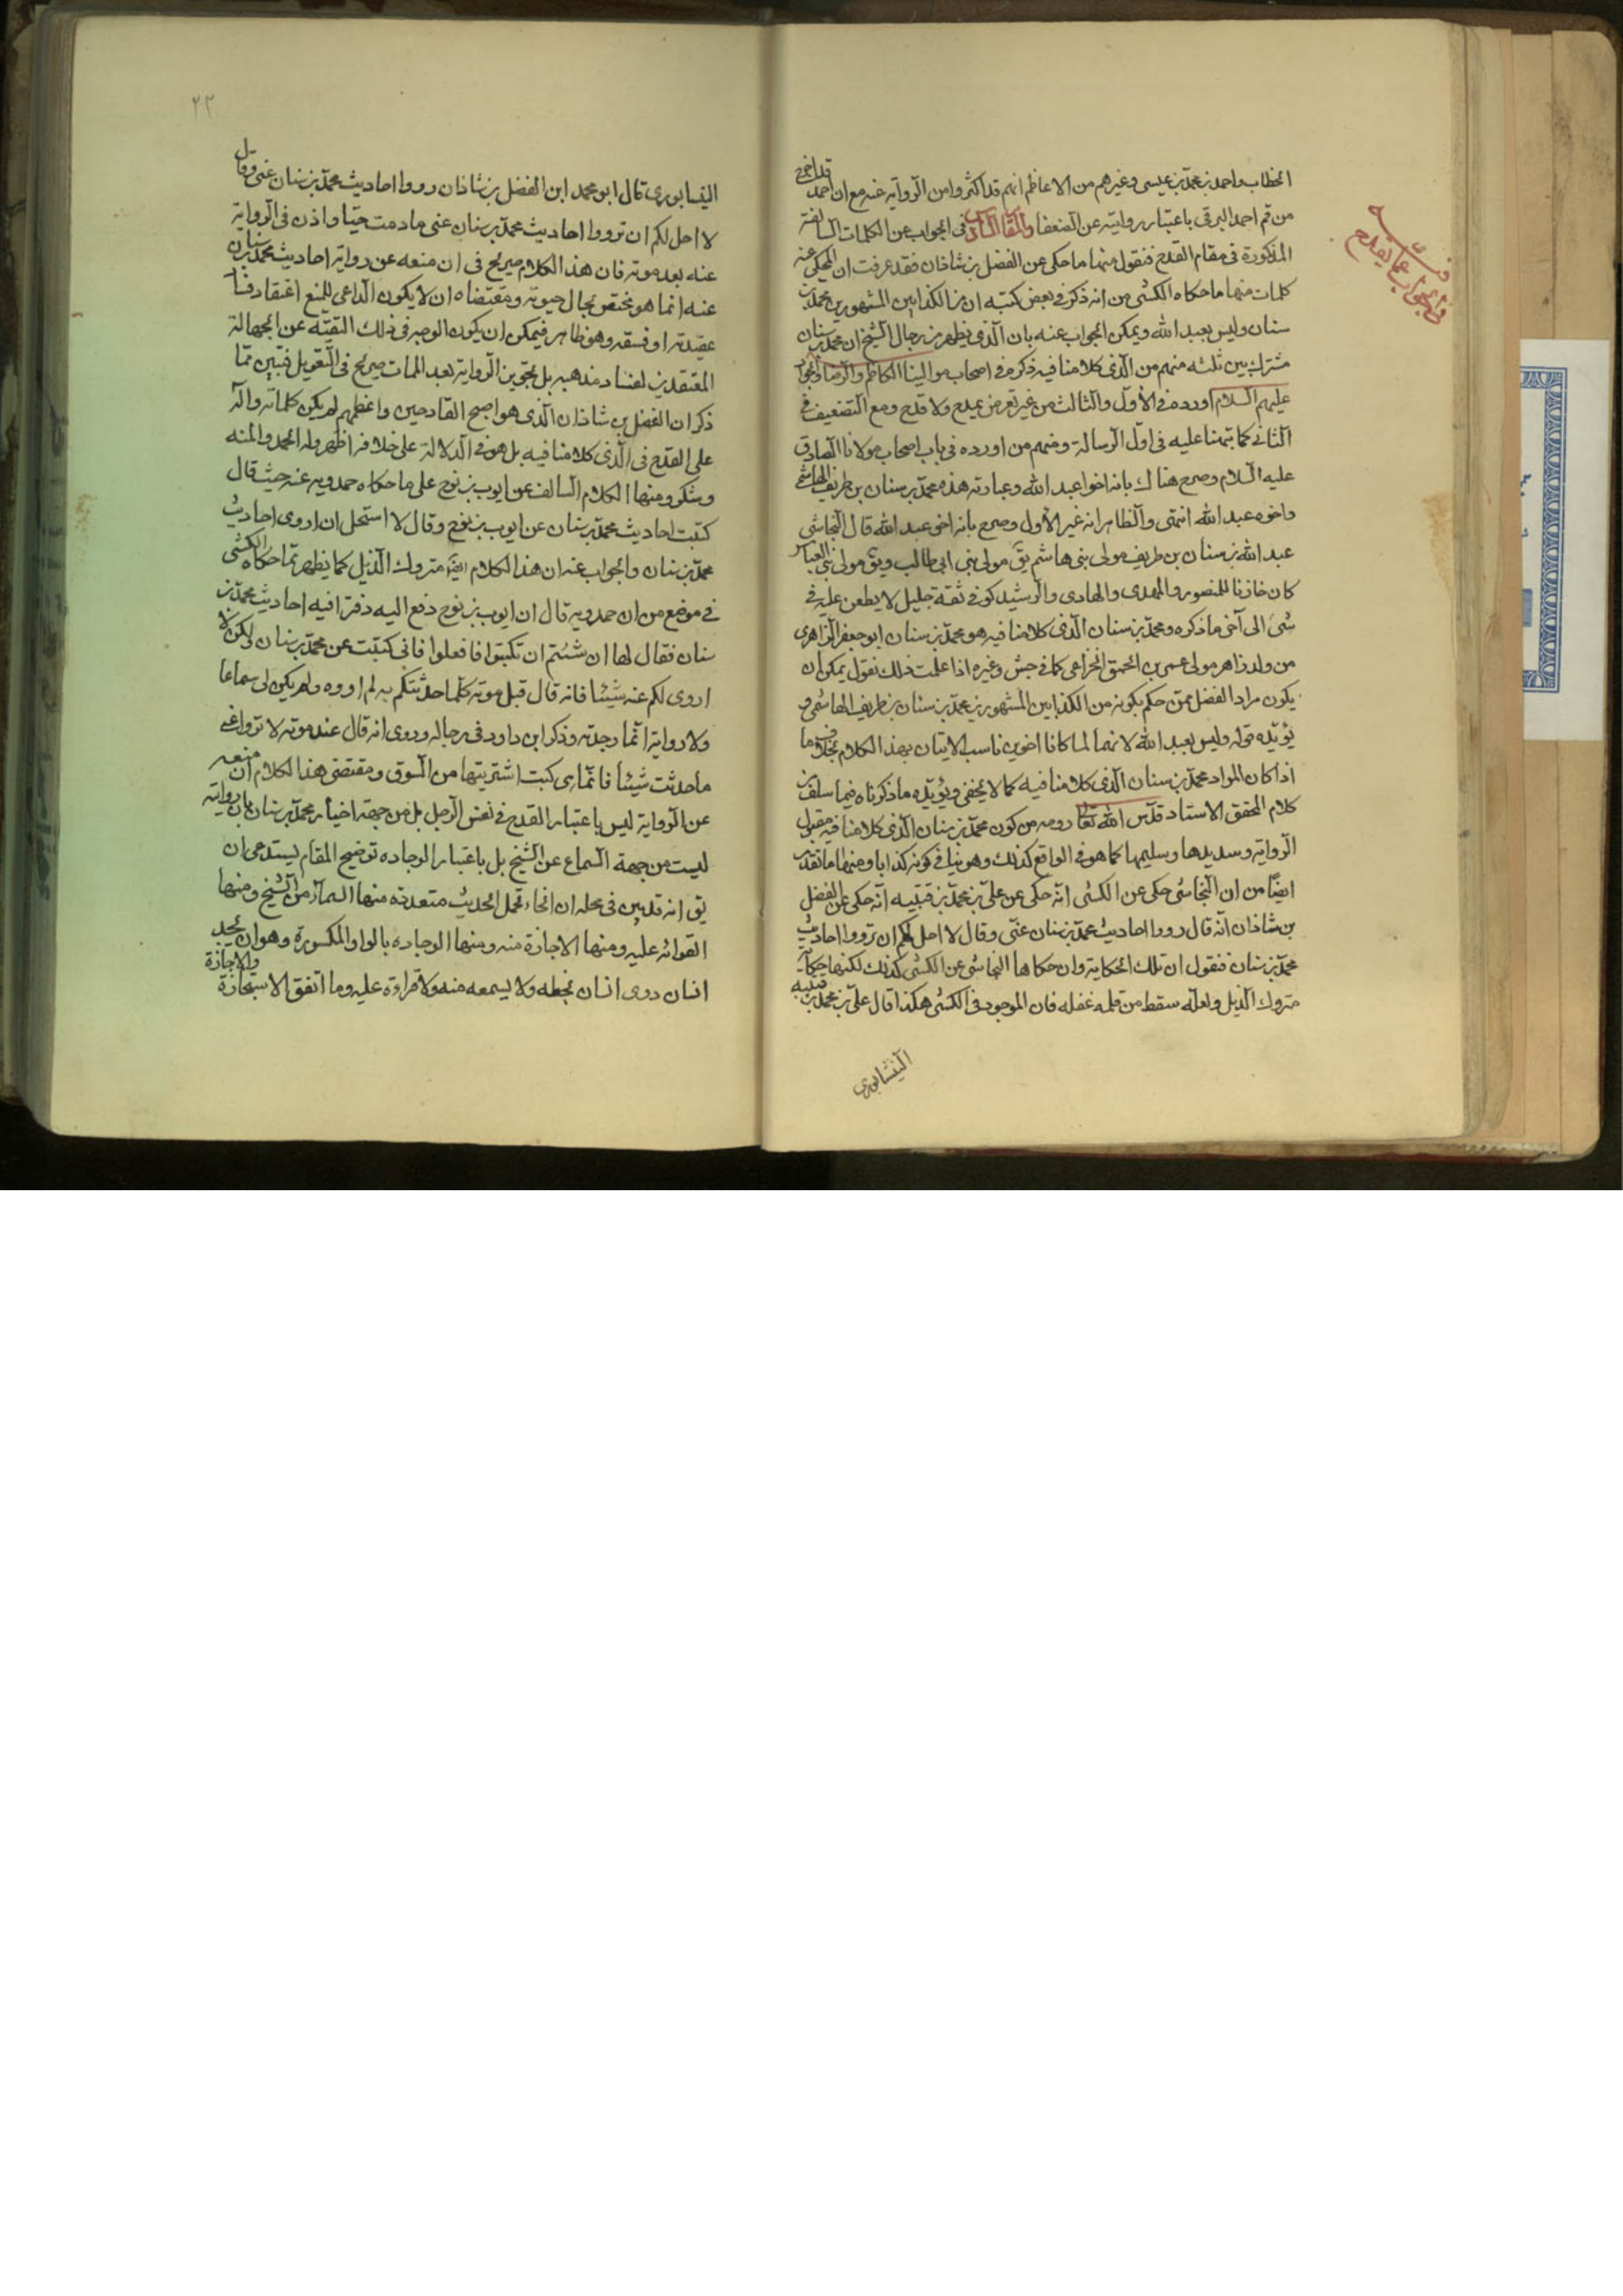 الخطاب واحمد بن محمد بن عيسى وغيرهم من الاعاظم انهم قد اكثروا من الرواية عنه مع ان احمد قد اخرج
من قم احمد البرقى باعتبار روايته عن الضعفا والمقام الثانى فى الجواب عن الكلمات السالفة
المذكورة فى مقام القدح فنقول منها ما حكى عن الفضل بن شاذان فقد عرفت ان المحكى عنه
كلمات منها ما حكاه الكشى من انه ذكر فى بعض كتبه ان من الكذابين المشهورين محمد بن
سنان وليس بعبد الله ويمكن الجواب عنه بان الذى يظهر من رجال الشيخ ان محمد بن سنان
مشترك بين ثلثه منهم من الذى كلامنا فيه ذكره فى اصحاب موالينا الكاظم والرضا والجواد
عليهم السلام اورده فى الأول والثالث من غير تعرض بمدح ولا قدح ومع التضعيف فى
الثانى كما نبهنا عليه فى اول الرسالة ومنهم من اورده فى باب اصحاب مولانا الصادق
عليه السلام وصرح هناك بانه اخو عبد الله وعبارته هذه محمد بن سنان بن طريف الهاشمى
واخوه عبد الله انتهى والظاهر انه غير الأول وصرح بانه اخو عبد الله قال النجاشى
عبد الله بن سنان بن طريف مولى بنى هاشم يق مولى بنى ابى طالب ويق مولى بنى العباس
كان خازنا للمنصور والمهدى والهادى والرشيد كوفى ثقة جليل لا يطعن عليه فى
شى الى آخر ما ذكره ومحمد بن سنان الذى كلامنا فيه هو محمد بن سنان ابو جعفر الزاهرى
من ولد زاهر مولى عمرو بن الحمق الخزاعى كما فى جش وغيره اذا علمت ذلك نقول يمكن ان
يكون مراد الفضل ممن حكم بكونه من الكذابين المشهورين محمد بن سنان بن طريف الهاشمى و
يؤيده قوله وليس بعبد الله لانهما لما كانا اخوين ناسب الاتيان بهذا الكلام بخلاف ما
اذا كان المراد محمد بن سنان الذى كلامنا فيه كما لا يخفى ويؤيده ما ذكرناه فيما سلف من
كلام المحقق الاستاد قدس الله تعالى روحه من كون محمد بن سنان الذى كلامنا فيه مقبول
الرواية وسديدها وسليمها كما هو فى الواقع كذلك وهو ينافى كونه كذابا ومنها ما تقدم
ايضا من ان النجاشى حكى عن الكشى انه حكى عن على بن محمد بن قتيبه انه حكى عن الفضل
بن شاذان انه قال ردوا احاديث محمد بن سنان عنى وقال لا احل لكم ان ترووا احاديث
محمد بن سنان فنقول ان تلك الحكاية وان حكاها النجاشى عن الكشى كذلك لكنها حكاية
متروك الذيل ولعله سقط من قلمه غفله فان الموجود فى الكشى هكذا قال على بن محمد بن قتيبه
النيشابورى
فى الجواب عما يقدح
٢٣
النيسابورى قال ابو محمد ابن الفضل بن شاذان ردوا احاديث محمد بن سنان عنى وقال
لا احل لكم ان ترووا احاديث محمد بن سنان عنى ما دمت حيا واذن فى الرواية
عنه بعد موته فان هذا الكلام صريح فى ان منعه عن رواية احاديث محمد بن سنان
عنه انما هو مختص بحال حيوته ومقتضاه ان لا يكون الداعى للمنع اعتقاد فساد
عقيدته او فسقه وهو ظاهر فيمكن ان يكون الوجه فى ذلك التقيه عن الجهالة
المعتقدين لفساد مذهبه بل تجويز الرواية بعد الممات صريح فى التعويل فتبين مما
ذكر ان الفضل بن شاذان الذى هو اصح القادحين واعظمهم لم يكن كلماته دالة
على القدح فى الذى كلامنا فيه بل هو فى الدلالة على خلافه اظهر وله الحمد والمنه
وشكر ومنها الكلام السالف عن ايوب بن نوح على ما حكاه حمدويه عنه حيث قال
كتبت احاديث محمد بن سنان عن ايوب بن نوح وقال لا استحل ان اروى احاديث
محمد بن سنان والجواب عنه ان هذا الكلام ايضا متروك الذيل كما يظهر مما حكاه الكشى
فى موضع من ان حمدويه قال ان ايوب بن نوح دفع اليه دفترا فيه احاديث محمد بن
سنان فقال لها ان شئتم ان تكتبوا فافعلوا فانى كتبت عن محمد بن سنان ولكن لا
اروى لكم عنه شيئا فانه قال قبل موته كلما حدثتكم به لم اروه ولم يكن لى سماعا
ولا رواية انما وجدته وذكر ابن داود فى رجاله وروى انه قال عند موته لا ترووا عنى
ما حدثت شيئا فانما هى كتب اشتريتها من السوق ومقتضى هذا الكلام ان منعه
عن الرواية ليس باعتبار القدح فى نفس الرجل بل من جهة اخبار محمد بن سنان بان روايته
ليست من جهة السماع عن الشيخ بل باعتبار الوجاده توضيح المقام يستدعى ان
يق انه قد بين فى محله ان انحاء تحمل الحديث متعددة منها السماع من الشيخ ومنها
القرائه عليه ومنها الاجازة منه ومنها الوجاده بالواو المكسورة وهو ان يجد
انسان روى انسان بخطه ولا يسمعه منه ولا قراءة عليه وما اتفق الاستجازة والاجازة